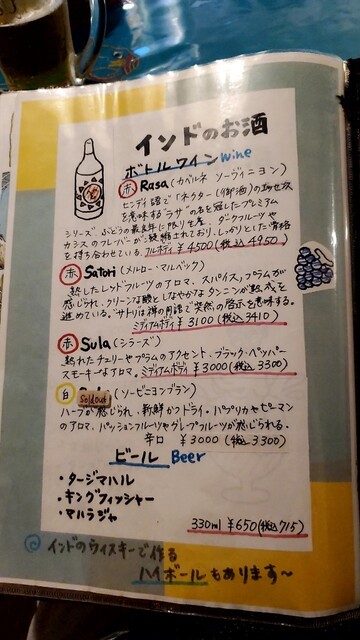 インドのお酒
ボトルワイン Wine
赤 Rasa (カベルネ ソーヴィニヨン)
ヒンディ語で「ネクター(御酒)の
を意味する"ラサ"の名を冠したプレミアム
シリーズ。ぶどうの最良年に限り生産。ダークフルーツや
カシスのフレーバーが凝縮されており、しっかりとした骨格
を持ち合わせている。フルボディ ¥4500(税込 4950)
赤 Satori (メルロー・マルベック)
熟したレッドフルーツのアロマ、スパイス、プラムが
感じられ、クリーンな酸としなやかなタンニンが熟成を
進めている。サトリは禅の用語で突然の啓示を意味する。
ミディアムボディ ¥3100(税込 3410)
赤 Sula (シラーズ)
熟れたチェリーやプラムのアクセント、ブラックペッパー
スモーキーなアロマ。ミディアムボディ ¥3000(税込 3300)
白 Soldout (ソービニヨンブラン)
ハーブが感じられ、新鮮かつドライ。パプリカやピーマン
のアロマ、パッションフルーツやグレープフルーツが感じられる。
辛口 ¥3000(税込 3300)
ビール Beer
・タージマハル
・キングフィッシャー
・マハラジャ
330ml ¥650(税込 715)
インドのウイスキーで作る
ハイボールもあります〜